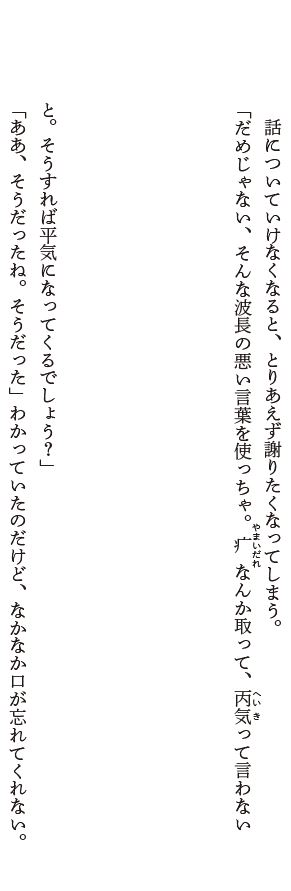 話についていけなくなると、とりあえず謝りたくなってしまう。
「だめじゃない、そんな波長の悪い言葉を使っちゃ。疒なんか取って、丙気って言わない
やまいだれ
へいき
と。そうすれば平気になってくるでしょう？」
「ああ、そうだったね。そうだった」わかっていたのだけど、なかなか口が忘れてくれない。